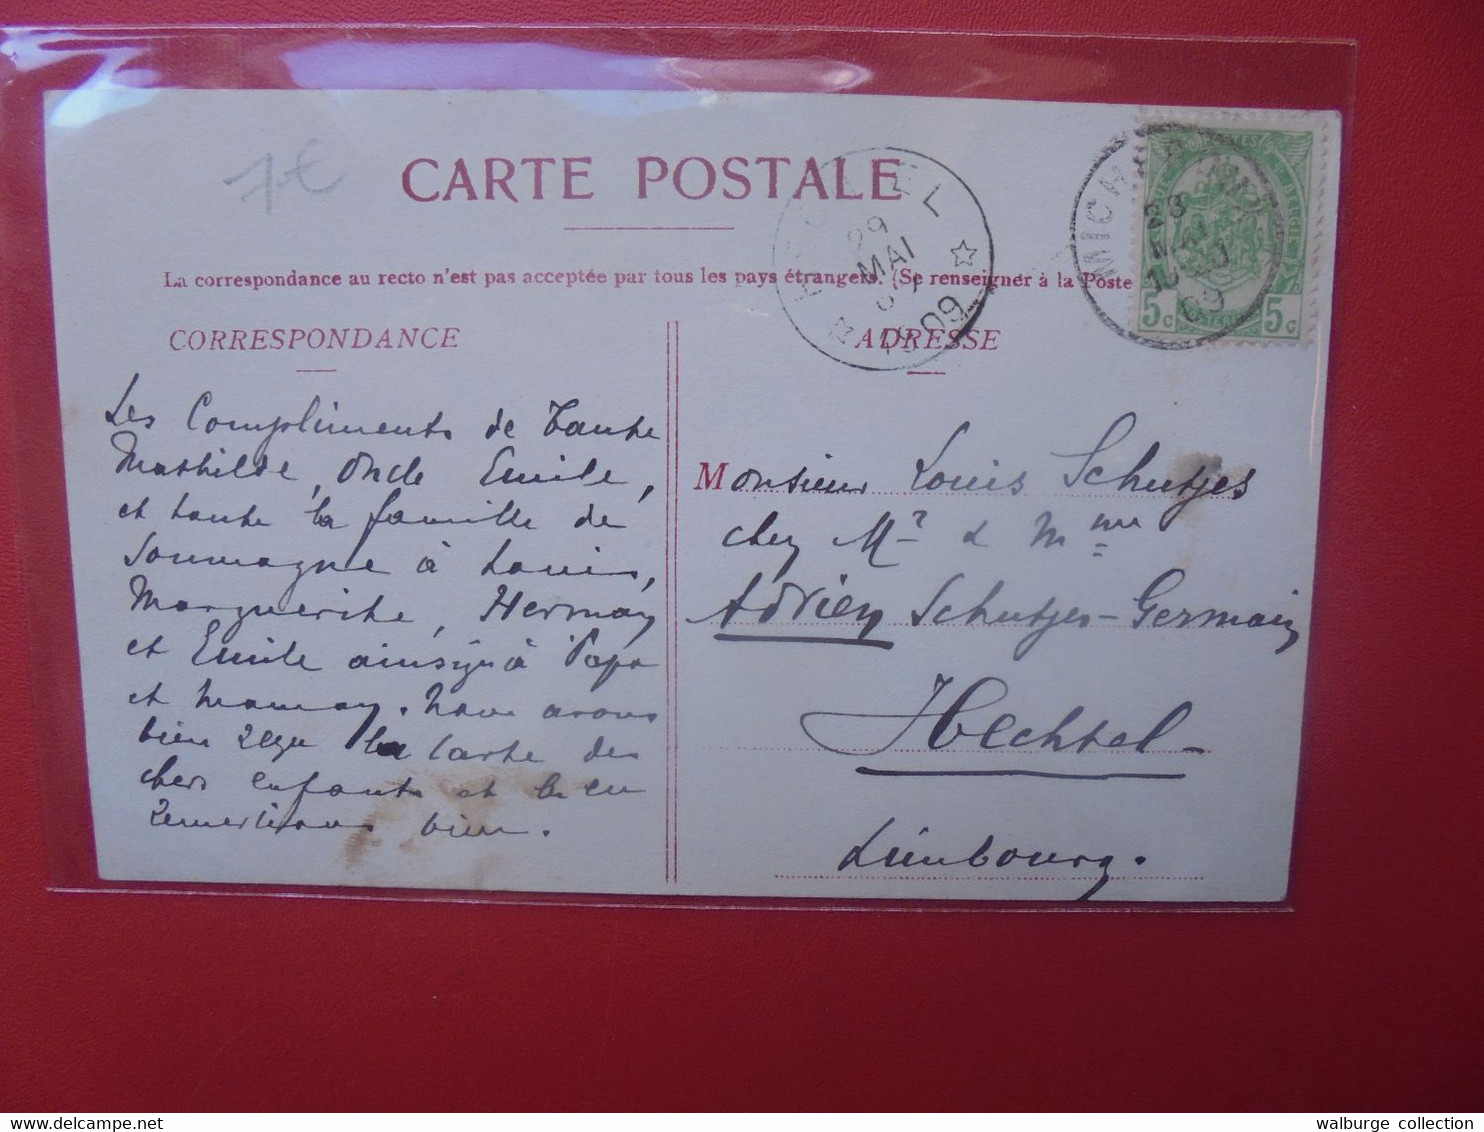 1€
CARTE POSTALE
La correspondance au recto n'est pas acceptée par tous les pays étrangers. (Se renseigner à la Poste
CORRESPONDANCE
ADRESSE
HECHTEL
29
MAI
1909
MICH
28
MAI
09
5c 5c
Les Compliments de Tante
Mathilde, Oncle Emile,
et toute la famille de
Soumagne à Louis,
Marguerite, Herman
et Emile ainsiqu'à Papa
et maman. Nous avons
bien reçu la Carte des
chers enfants et les en
remercions bien.
Monsieur Louis Schutjes
chez Mr & Mme
Adrien Schutjes-Germain
Hechtel
Limbourg.
delcampe.net
walburge collection